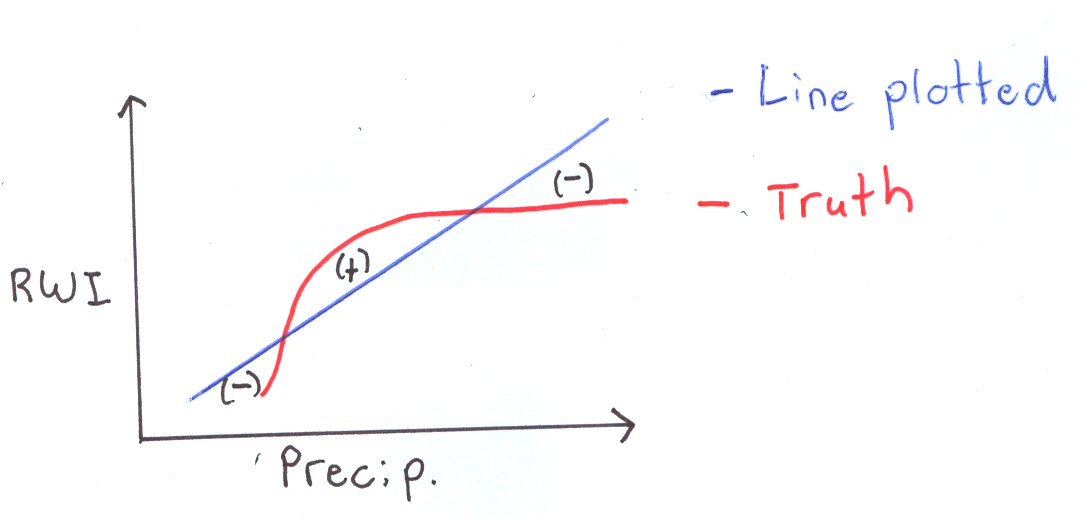 - Line plotted
(-)
- Truth
(+)
RWI
(-)
Precip.